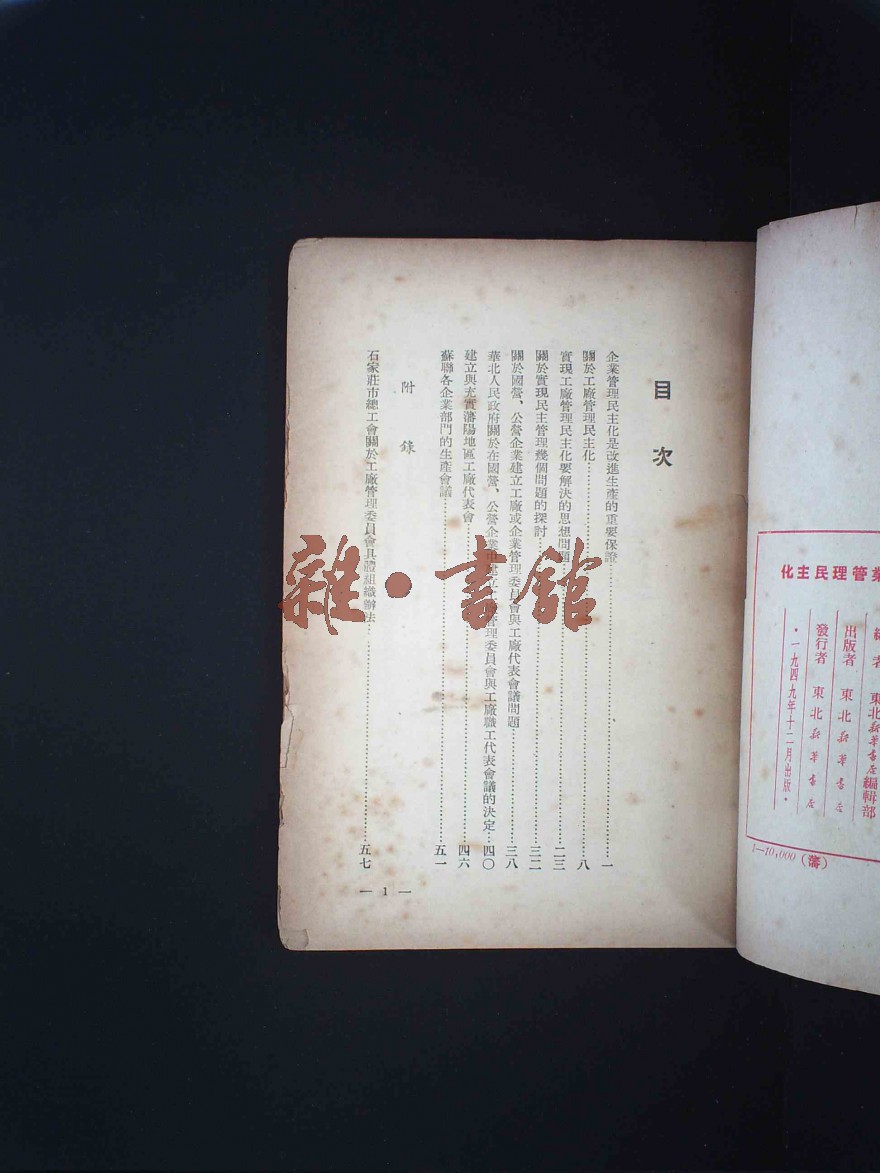 業管理民主化
編者 東北新華書店編輯部
出版者 東北新華書店
發行者 東北新華書店
・一九四九年十二月出版・
1—10,000（瀋）
目次
企業管理民主化是改進生產的重要保證……一
關於工廠管理民主化……八
實現工廠管理民主化要解決的思想問題……二三
關於實現民主管理幾個問題的探討……三二
關於國營、公營企業建立工廠或企業管理委員會與工廠代表會議問題……三八
華北人民政府關於在國營、公營企業中建立工廠管理委員會與工廠職工代表會議的決定…四〇
建立與充實瀋陽地區工廠代表會……四六
蘇聯各企業部門的生產會議……五一
附錄
石家莊市總工會關於工廠管理委員會具體組織辦法……五七
— 1 —
雜·書館